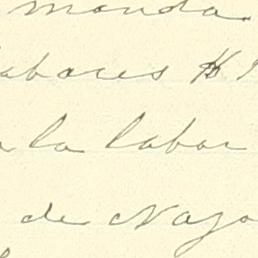 manda
labores
la labor
de Naya